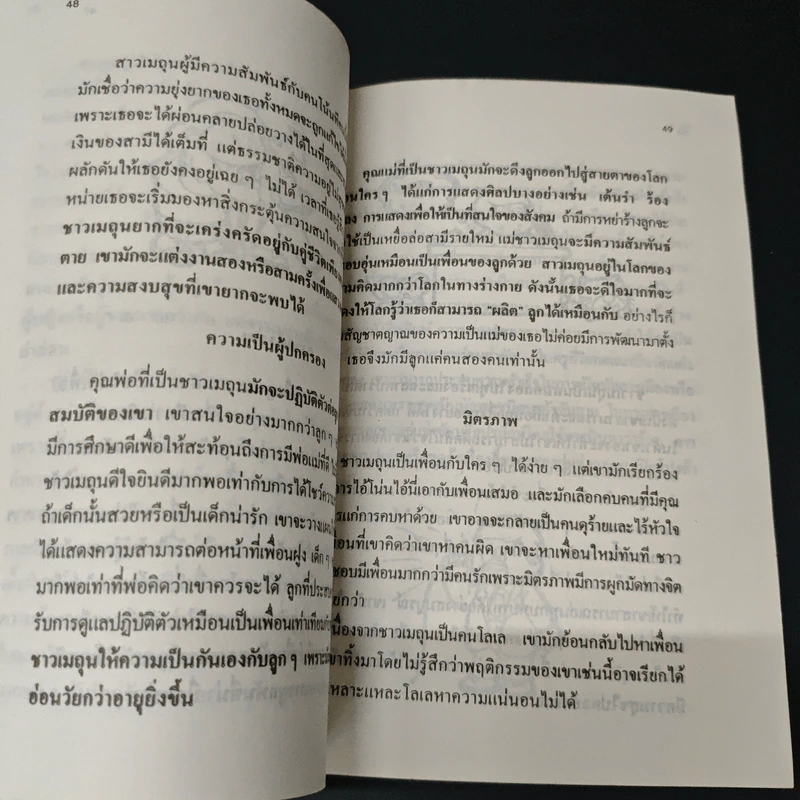 48
สาวเมถุนผู้มีความสัมพันธ์กับคนโน้น
มักเชื่อว่าความยุ่งยากของเธอทั้งหมดจะถูก
เพราะเธอจะได้ผ่อนคลายปล่อยวางได้ในที่สุด
เงินของสามีได้เต็มที่ แต่ธรรมชาติความอยู่ไม่
ผลักดันให้เธอยังคงอยู่เฉย ๆ ไม่ได้ เวลาที่
หน่ายเธอจะเริ่มมองหาสิ่งกระตุ้นความสนใจ
ชาวเมถุนยากที่จะเคร่งครัดอยู่กับคู่ชีวิต
ตาย เขามักจะแต่งงานสองหรือสามครั้งเพื่อ
และความสงบสุขที่เขายากจะพบได้
ความเป็นผู้ปกครอง
คุณพ่อที่เป็นชาวเมถุนมักจะปฏิบัติตัวต่อ
สมบัติของเขา เขาสนใจอย่างมากกว่าลูก ๆ
มีการศึกษาดีเพื่อให้สะท้อนถึงการมีพ่อแม่ที่ดี
ชาวเมถุนดีใจยินดีมากพอเท่ากับการได้โชว์ความ
ถ้าเด็กนั้นสวยหรือเป็นเด็กน่ารัก เขาจะวาง
ได้แสดงความสามารถต่อหน้าที่เพื่อนฝูง เด็ก ๆ
มากพอเท่าที่พ่อคิดว่าเขาควรจะได้ ลูกที่
รับการดูแลปฏิบัติตัวเหมือนเป็นเพื่อนเท่าเทียม
ชาวเมถุนให้ความเป็นกันเองกับลูก ๆ เพราะ
อ่อนวัยกว่าอายุยิ่งขึ้น
49
คุณแม่ที่เป็นชาวเมถุนมักจะดึงลูกออกไปสู่สายตาของโลก
ใคร ๆ ได้แก่การแสดงศิลปบางอย่างเช่น เต้นรำ ร้อง
การแสดงเพื่อให้เป็นที่สนใจของสังคม ถ้ามีการหย่าร้างลูกจะ
ใช้เป็นเหยื่อล่อสามีรายใหม่ แม่ชาวเมถุนจะมีความสัมพันธ์
อบอุ่นเหมือนเป็นเพื่อนของลูกด้วย สาวเมถุนอยู่ในโลกของ
ความคิดมากกว่าโลกในทางร่างกาย ดังนั้นเธอจะดีใจมากที่จะ
ให้โลกรู้ว่าเธอก็สามารถ "ผลิต" ลูกได้เหมือนกับ อย่างไรก็
สัญชาตญาณของความเป็นแม่ของเธอไม่ค่อยมีการพัฒนามาตั้ง
เธอจึงมักมีลูกแค่คนสองคนเท่านั้น
มิตรภาพ
ชาวเมถุนเป็นเพื่อนกับใคร ๆ ได้ง่าย ๆ แต่เขามักเรียกร้อง
การไอ้โน่นไอ้นี่เอากับเพื่อนเสมอ และมักเลือกคบคนที่มีคุณ
แก่การคบหาด้วย เขาอาจจะกลายเป็นคนดุร้ายและไร้หัวใจ
ที่เขาคิดว่าเขาหาคนผิด เขาจะหาเพื่อนใหม่ทันที ชาว
ชอบมีเพื่อนมากกว่ามีคนรักเพราะมิตรภาพมีการผูกมัดทางจิต
กว่า
เนื่องจากชาวเมถุนเป็นคนโลเล เขามักย้อนกลับไปหาเพื่อน
เขาทิ้งมาโดยไม่รู้สึกว่าพฤติกรรมของเขาเช่นนี้อาจเรียกได้
เหลาะแหละโลเลหาความแน่นอนไม่ได้